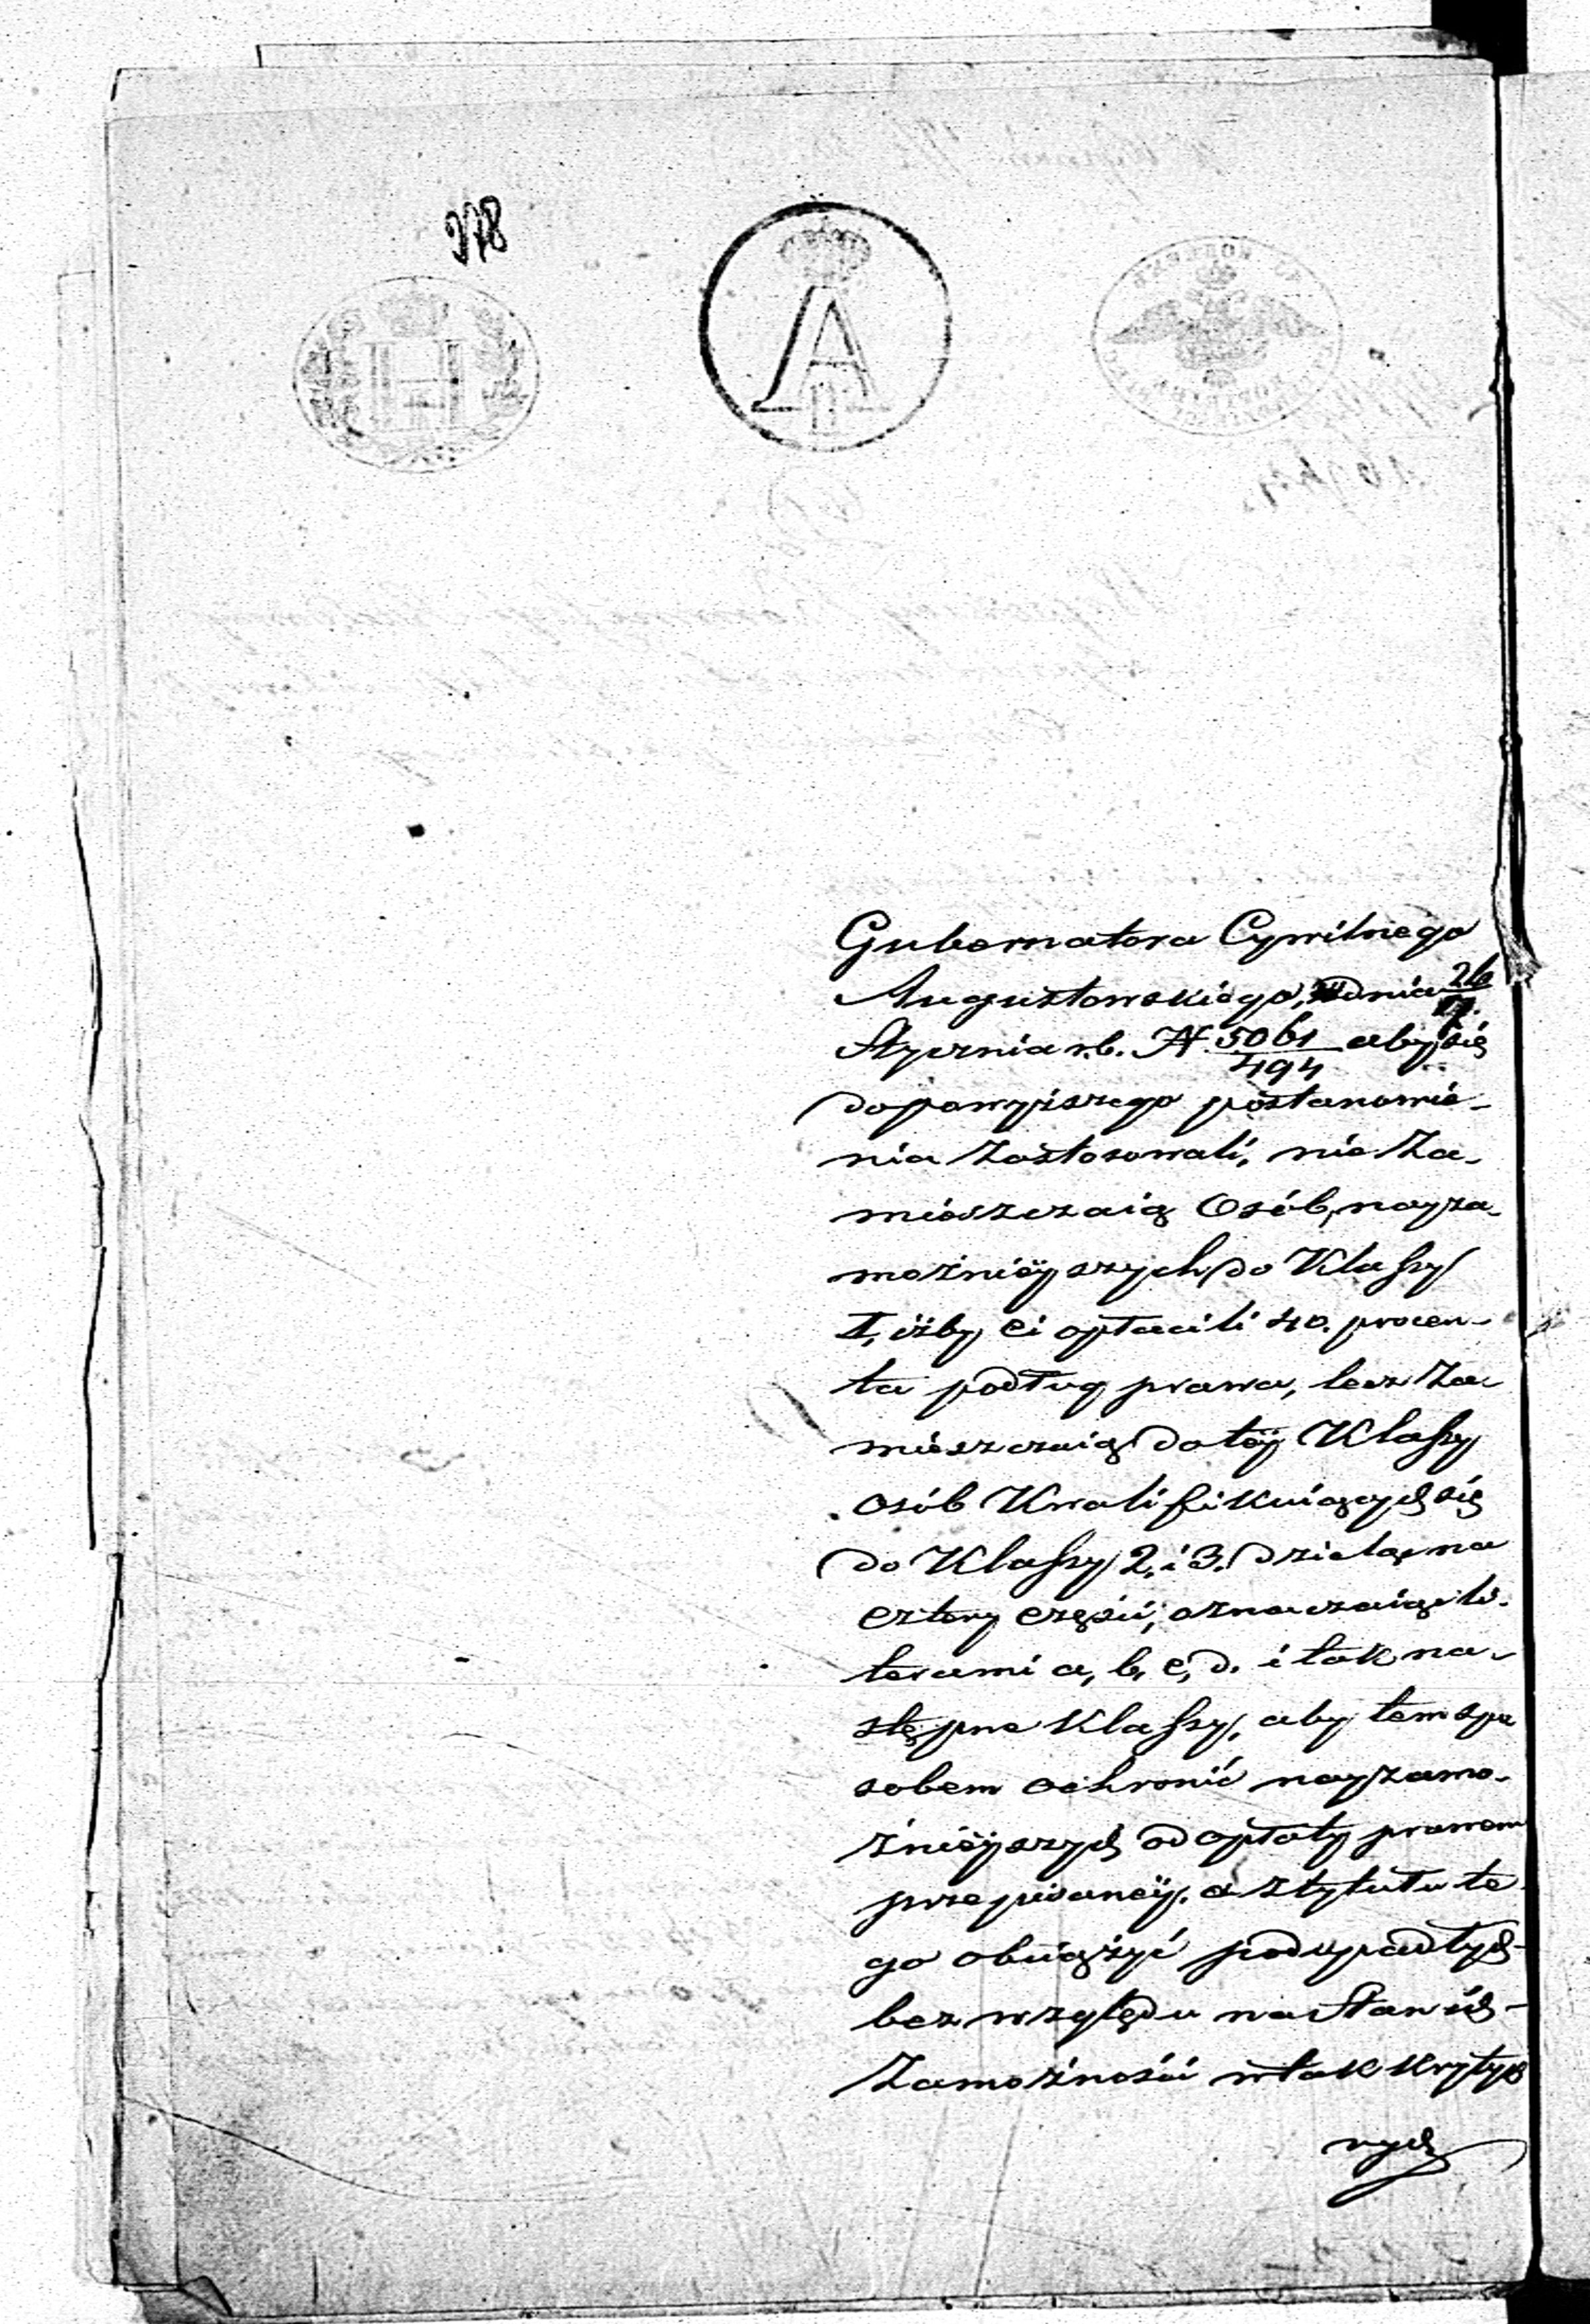 278
Gubernatora Cywilnego
Augustowskiego, dnia 26/7.
Stycznia r.b. N 5061/494 aby się
do powyższego postanowie-
nia zastosowali, nie za-
mieszczaią Osób, nayza-
możnieÿszych do Klassy
I, iżby ci opłacili 40. procen-
ta podług prawa, lecz za-
mieszczaią do téÿ Klassy
osób Kwalifikuiących się
do Klassy 2. i 3. dzieląc na
cztery części, oznaczaiąc li-
terami a, b, c, d. i tak na-
stępne Klassy, aby tem spo
sobem ochronić nayzamo-
żnieÿszych od opłaty prawem
przepisanéÿ. a z tytułu te
go obciążyć podupadłych
bez względu na Stan ich
Zamożności w tak krytycz
nych